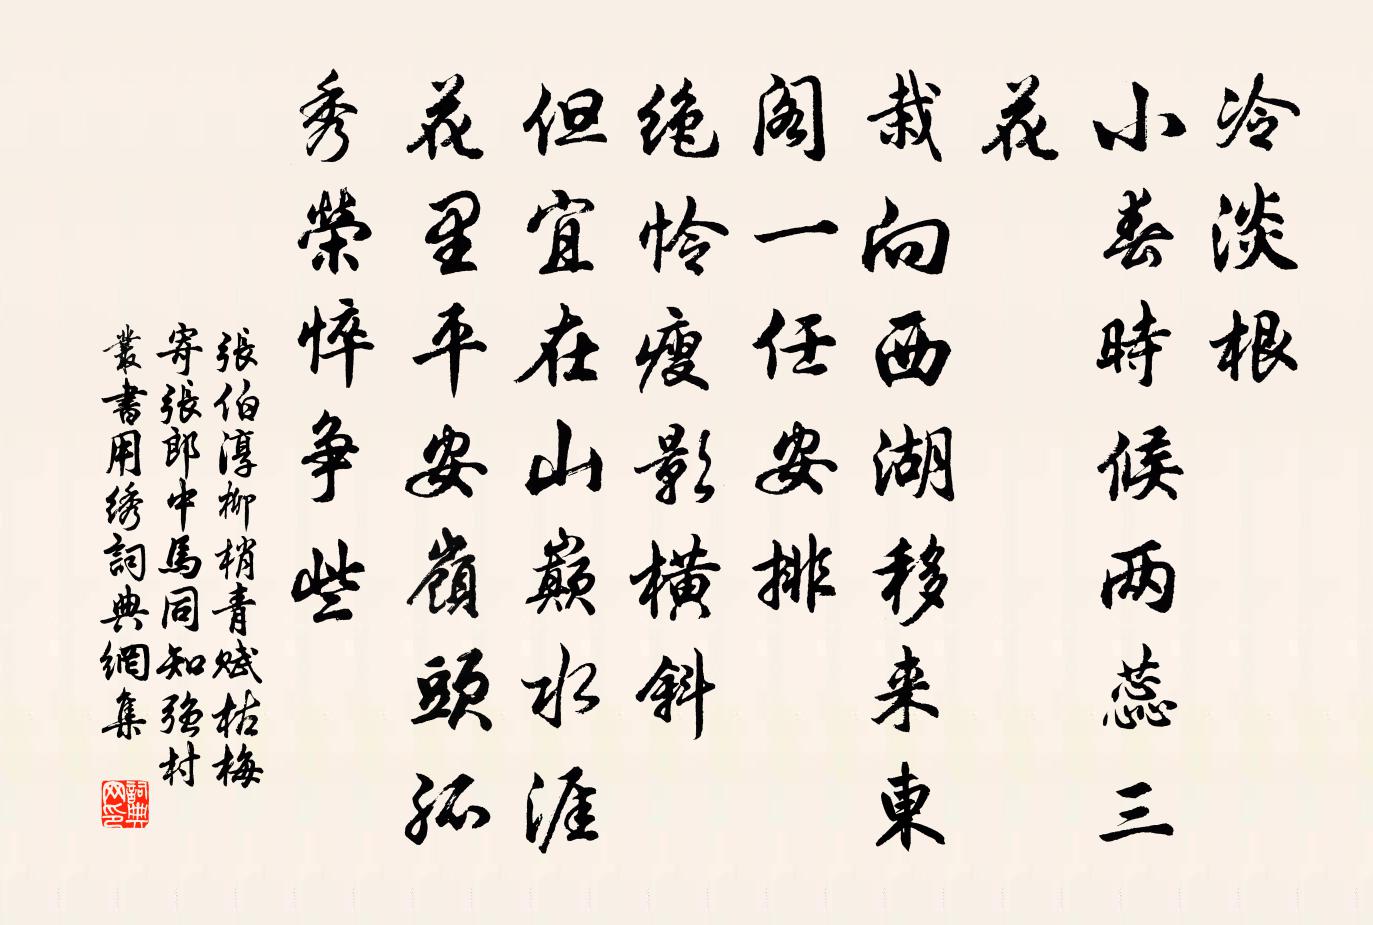 冷淡根
小春時候两蕊三
花
栽向西湖移来東
阁一任安排
绝怜瘦影横斜
但宜在山巅水涯
花里平安嶺頭孤
秀榮悴争些
張伯淳柳梢青赋枯梅
寄張郎中馬同知强村
叢書用绣詞典網集
詞典网印